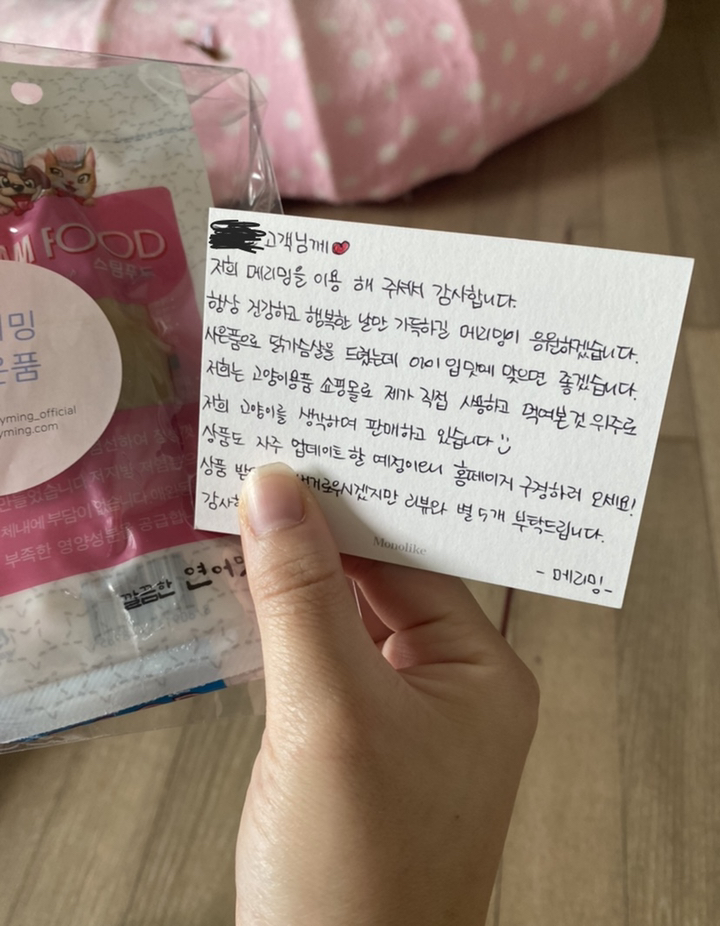 고객님께
저희 메리밍을 이용 해 주셔서 감사합니다.
항상 건강하고 행복한 날만 가득하길 메리밍이 응원하겠습니다.
사은품으로 닭가슴살을 드렸는데 아이 입맛에 맞으면 좋겠습니다.
저희는 고양이용품 쇼핑몰로 제가 직접 사용하고 먹여본것 위주로
저희 고양이를 생각하여 판매하고 있습니다
상품도 자주 업데이트 할 예정이오니 홈페이지 구경하러 오세요!
상품 받 거로우시겠지만 리뷰와 별 5개 부탁드립니다.
감사
- 메리밍-
Monolike
AM FOOD
스팀푸드
밍
은품
yming_official
yming.com
체내에 부담이 없습니다
부족한 영양성분 공급
깔끔한 연어